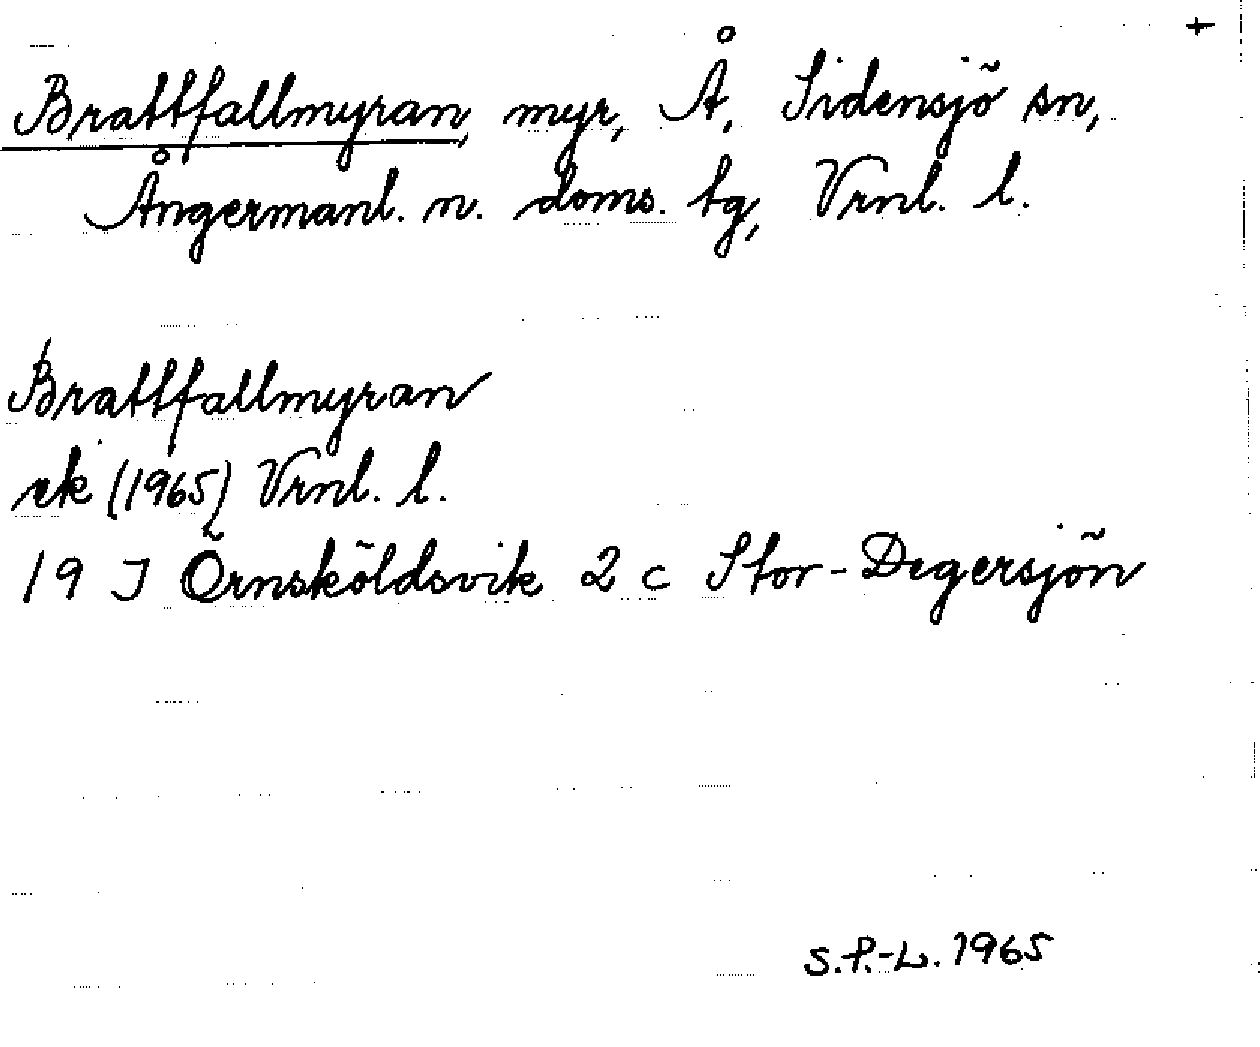 +
Brattfallmyran, myr, Å, Sidensjö sn,
Ångermanl. n. doms. tg, Vrnl. l.
Brattfallmyran
ek (1965) Vrnl. l.
19 J Örnsköldsvik 2 c Stor-Degersjön
S.P.-L. 1965